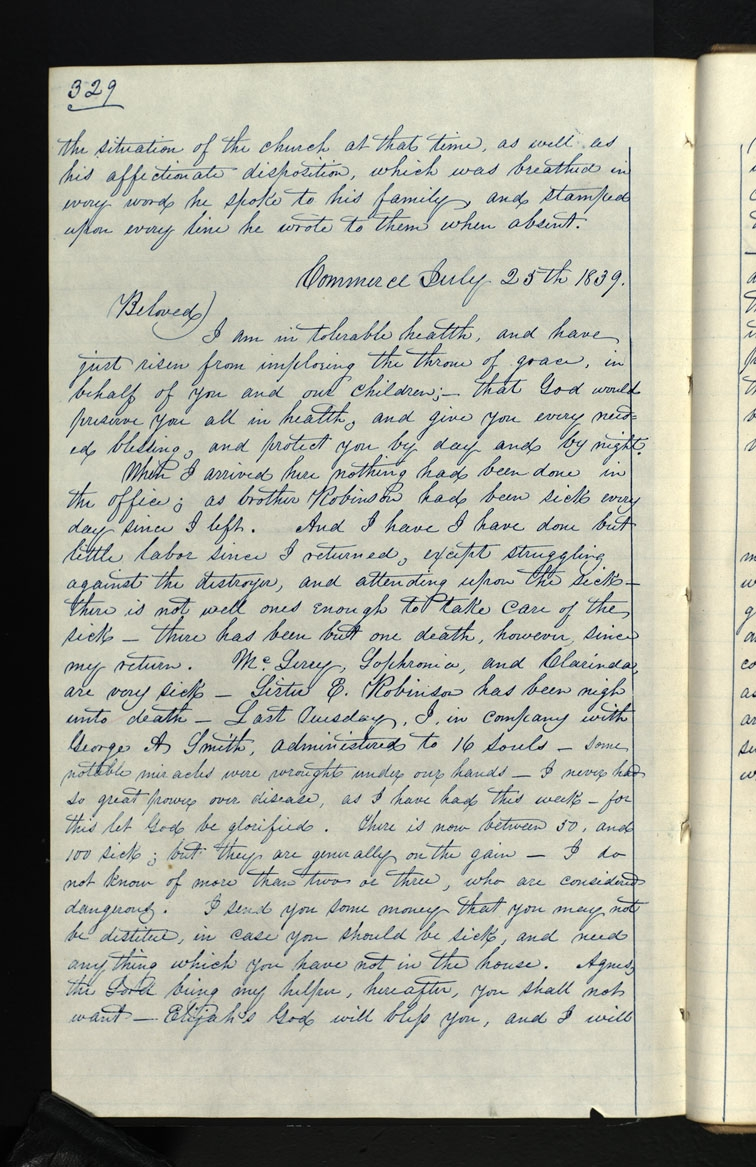 329
the situation of the church at that time, as well as
his affectionate disposition, which was breathed in
every word he spoke to his family, and stamped
upon every line he wrote to them when absent.
Commerce July 25th 1839.
Beloved)
I am in tolerable health, and have
just risen from imploring the throne of grace, in
behalf of you and our children;— that God would
preserve you all in health, and give you every need=
ed blessing, and protect you by day and by night.
When I arrived here nothing had been done in
the office; as brother Robinson had been sick every
day since I left. And I have I have done but
little labor since I returned, except struggling
against the distroyer, and attending upon the sick—
there is not well ones enough to take care of the
sick — there has been but one death, however, since
my return. Mc Lerey, Sophronia, and Clarinda,
are very sick — Sister E. Robinson has been nigh
unto death — Last Tuesday, I, in company with
George A Smith, administered to 16 souls — some
notable miracles were wrought under our hands — I never had
so great power over disease, as I have had this week — for
this let God be glorified. There is now between 50, and
100 sick; but they are generally on the gain — I do
not know of more than two or three, who are considered
dangerous. I send you some money that you may not
be distitue, in case you should be sick, and need
any thing which you have not in the house. Agnes,
the Lord being my helper, hereafter, you shall not
want — Elijah's God will bless you, and I will